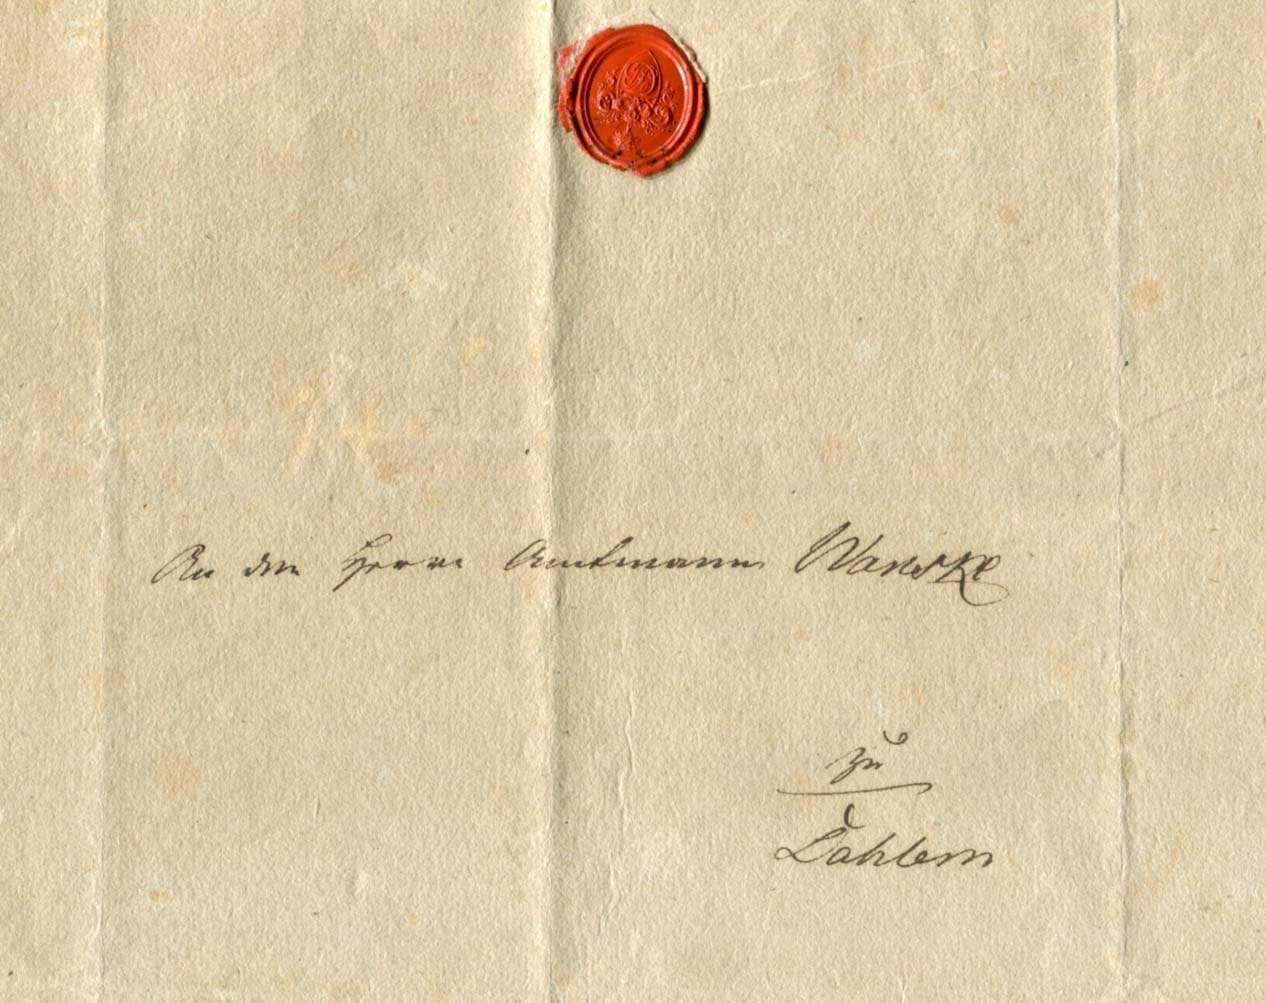 An den Herrn Amtmann
zu
Dahlem